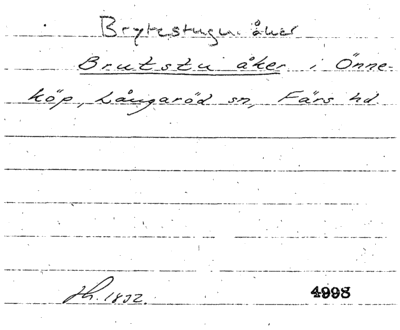 Brytestugu åker
Brutstu åker i Önne-
köp, Långaröd sn, Färs hd
Jh. 1832. 4998